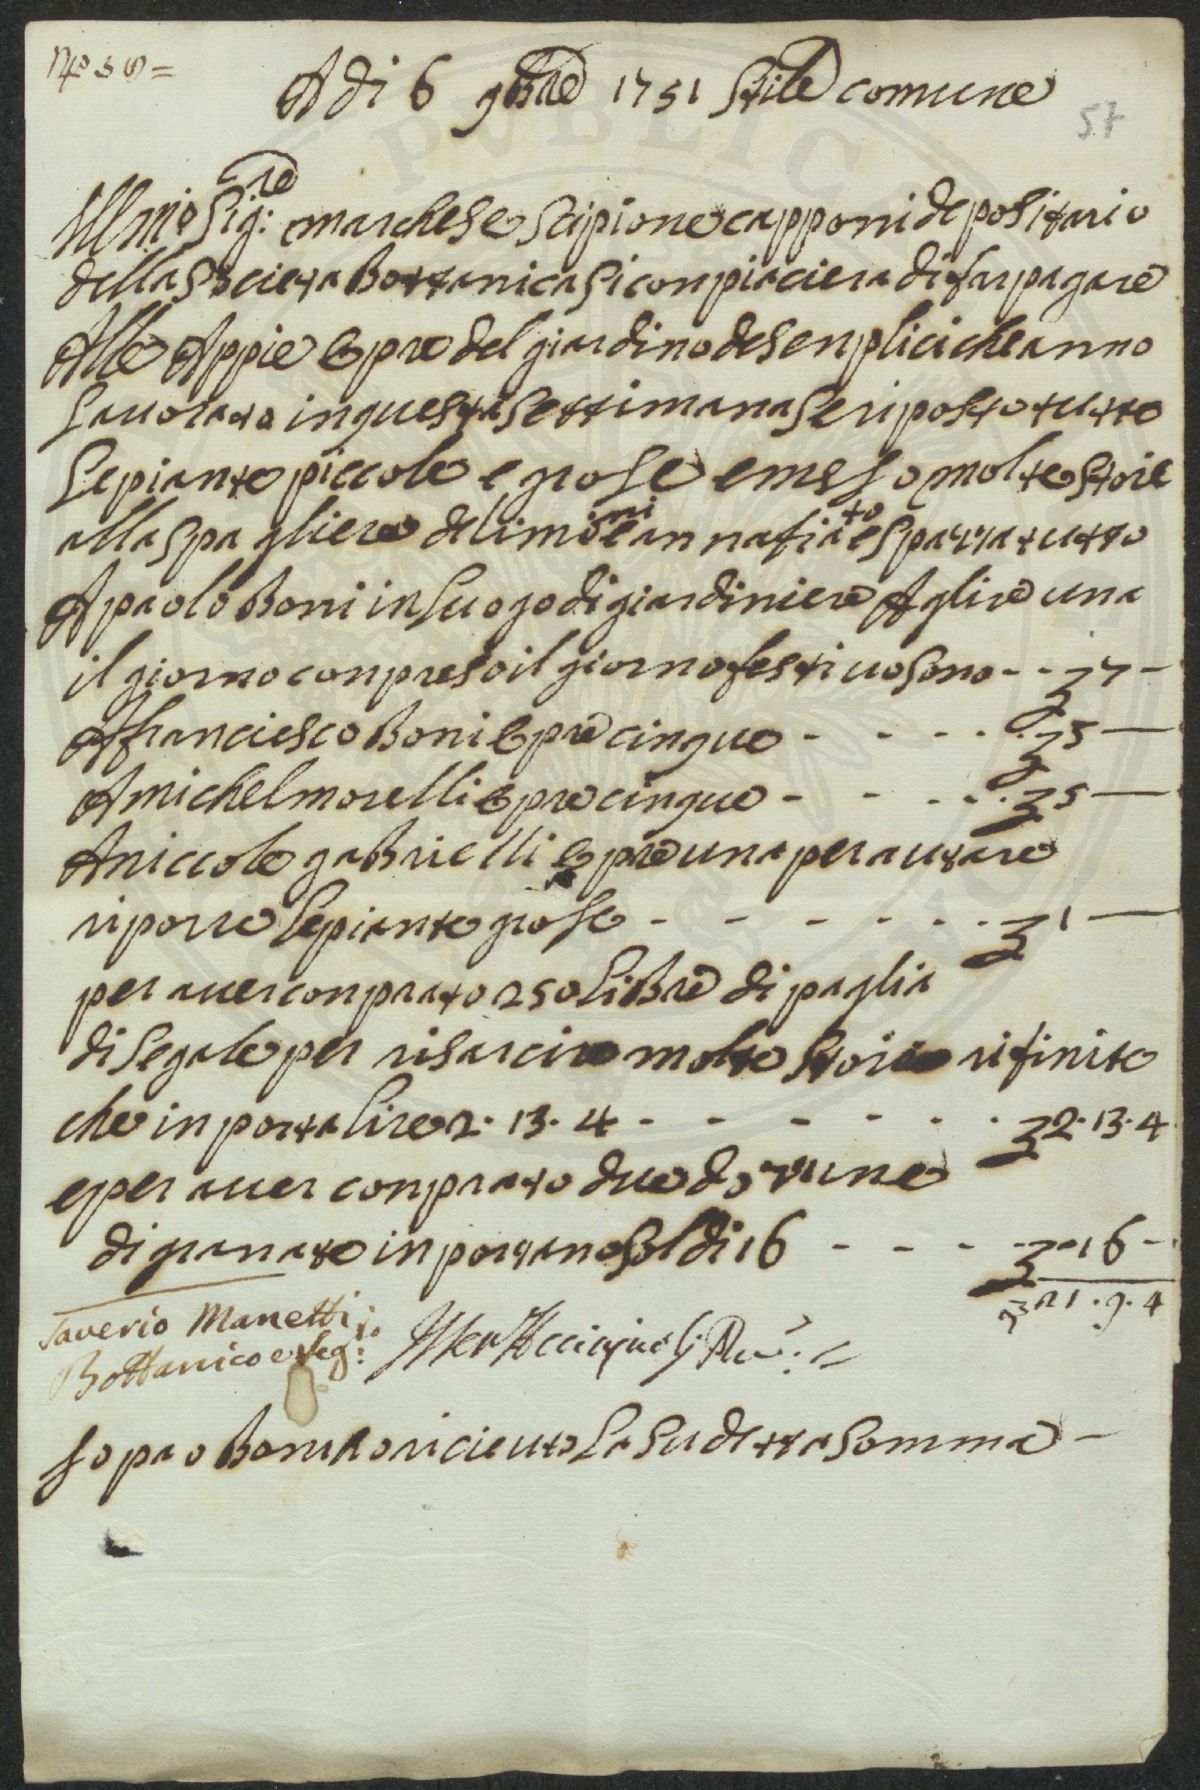 No 56=
A di 6 9bre 1751 Stile comune
57
Illmo Sig:re marchese Scipione capponi depositario
della Societa Bottanica si conpiaciera di far pagare
Alle Appie Opre del giardino de senplici che anno
Lauorato in questa settimana se riposto tutte
Le piante piccole e grose e meso molte stoie
alla spagliera de limoni e annafiato e sparzato tutto
A paolo Boni in Luogo di giardiniere A lire una
il giorno conpreso il giorno festiuo sono - - £ 7 -
A franciesco Boni Opre cinque - - - - £ 5 -
A michel morelli Opre cinque - - - - £ 5 -
A niccole gabrielli Opre una per autare
riporre Le piante grose - - - - - £ 1 -
per auer conprato 250 Libre di paglia
di Segale per risarcire molte Stoie rifinite
che inporta lire 2. 13. 4 - - - - - £ 2. 13. 4
e per auer conprato due dozzine
di granate inportano Soldi 16 - - - - £ - 16 -
£ 21. 9. 4
Saverio Manetti
Bottanico e Seg:rio
Io pao Boni o riceuto La Sudetta Somma -